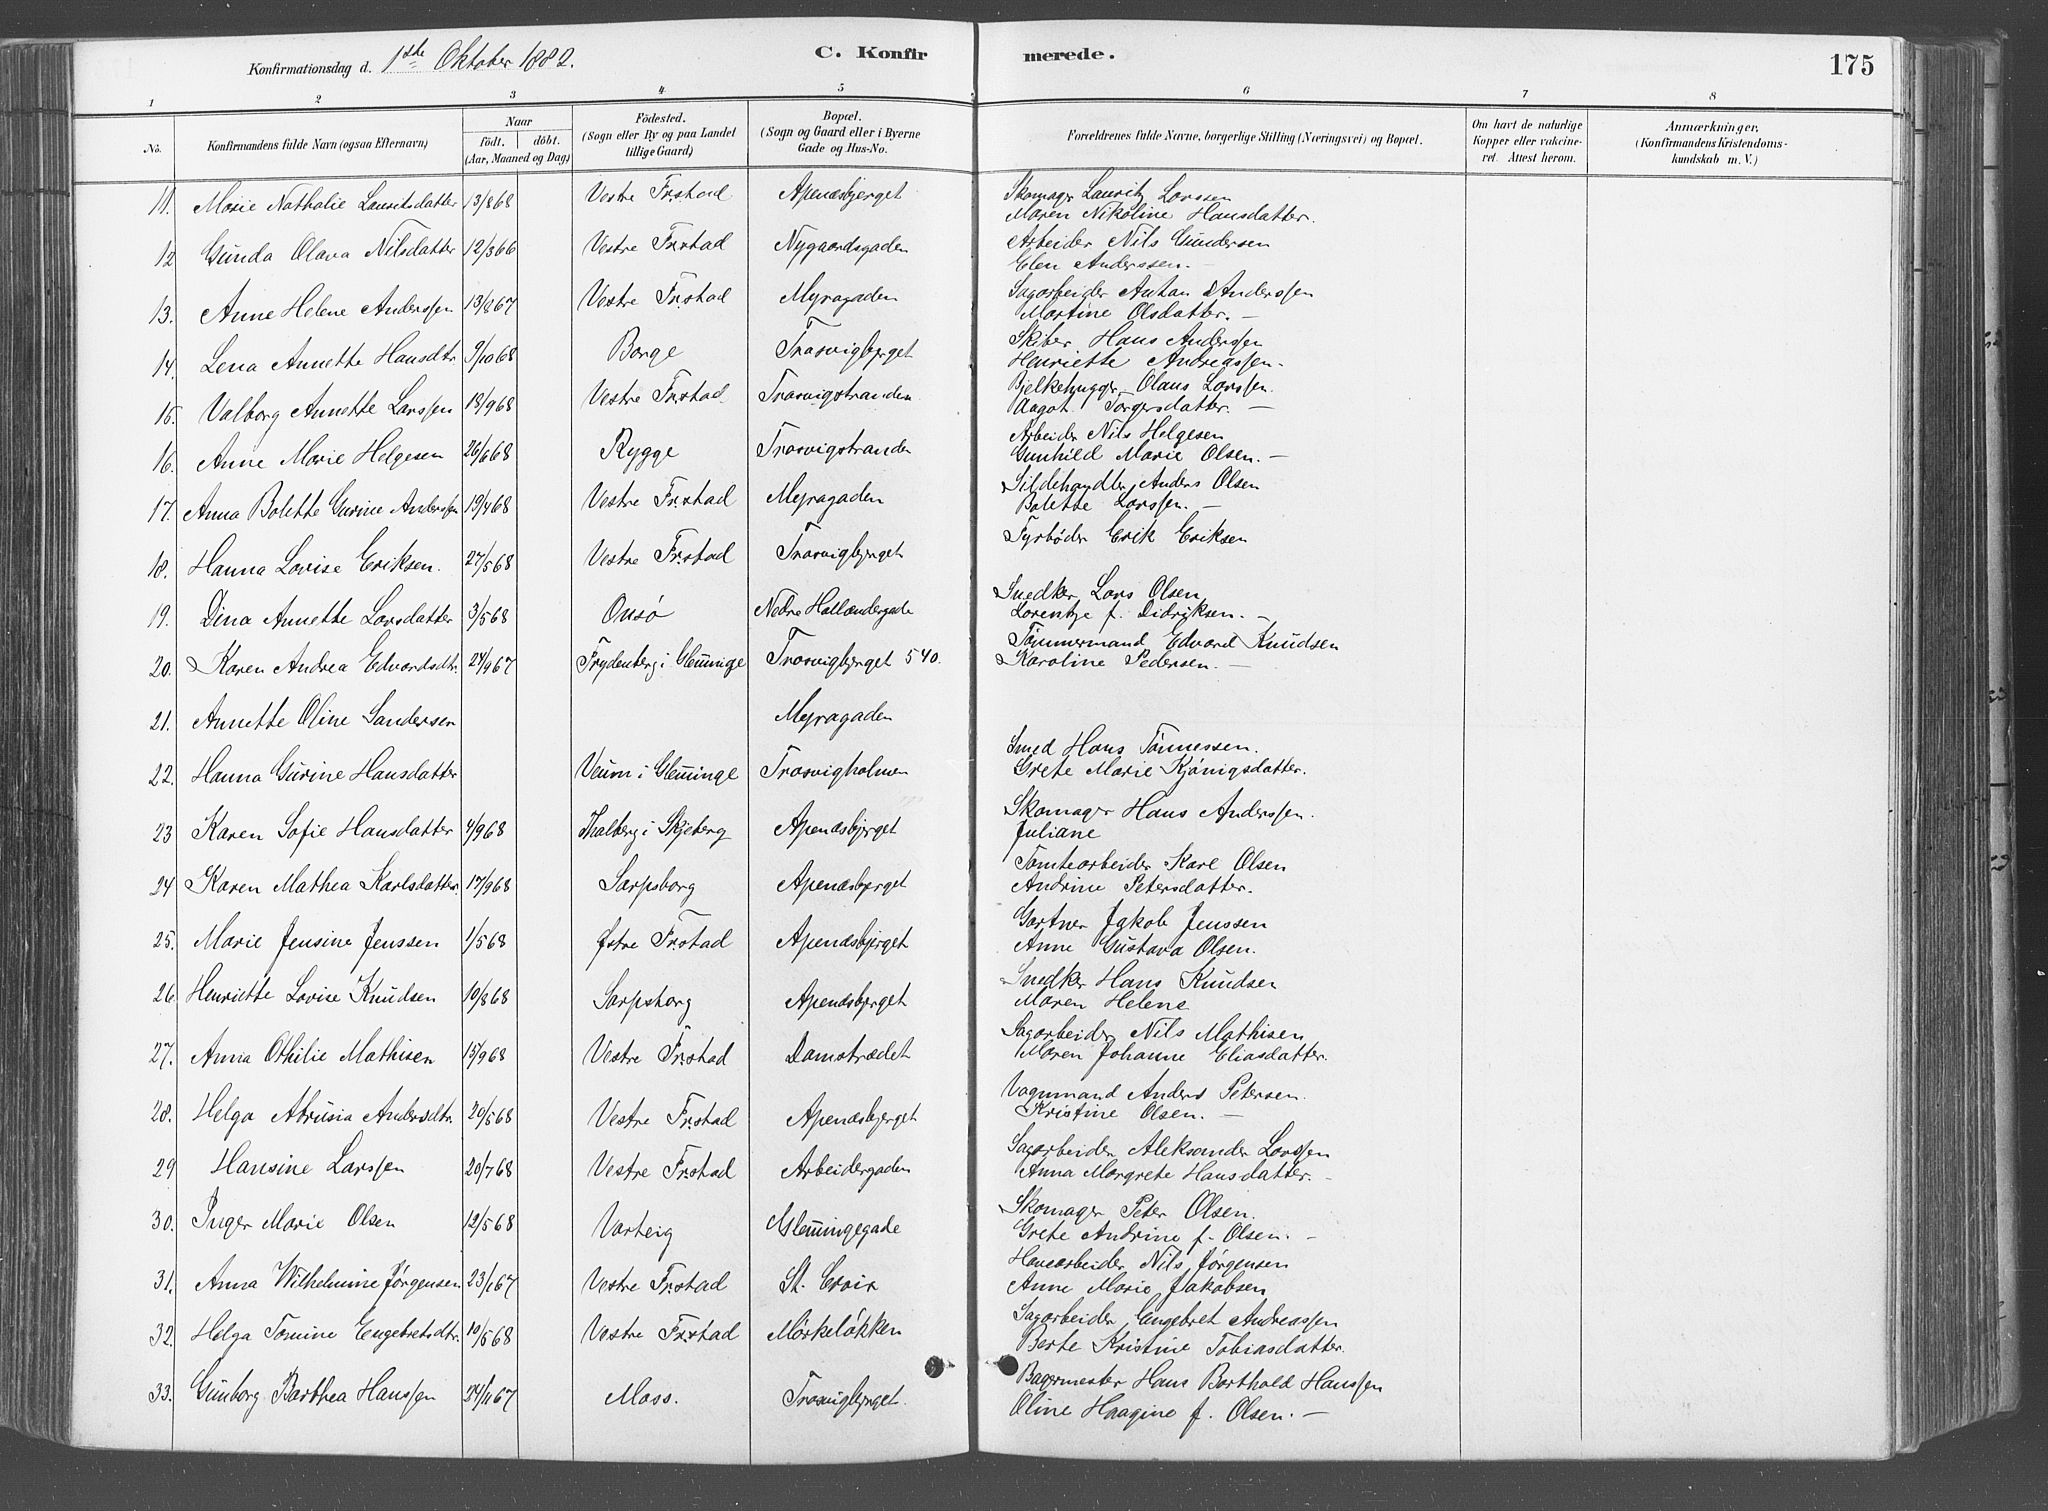 Konfirmationsdag d. 1ste Oktober 1882. C. Konfirmerede. 175
1 2 3 4 5 6 7 8
No. Konfirmandens fulde Navn (ogsaa Efternavn) Naar födt. döbt. (Aar, Maaned og Dag) Födested. (Sogn eller By og paa Landet tillige Gaard) Bopæl. (Sogn og Gaard eller i Byerne Gade og Hus-No. Forældrenes fulde Navne, borgerlige Stilling (Næringsvei) og Bopæl. Om havt de naturlige Kopper eller vakcineret. Attest herom. Anmærkninger, (Konfirmandens Kristendomskundskab m. V.)
11. Marie Nathalie Lauritsdatter 13/8 68 Vestre Fr.stad Apenæsbjerget Skomager Lauritz Larssen
Maren Nikoline Hansdatter.
12 Gunda Olava Nilsdatter 12/3 66 Vestre Fr.stad Nygaardsgaden Arbeider Nils Gundersen
Elen Anderssen. —
13. Anne Helene Anderssen 13/8 67 Vestre Fr.stad Myragaden Sagarbeider Anton Anderssen
Martine Olsdatter. —
14. Lena Annette Hansdtr. 9/10 68 Borge Trosvigbjerget Skiber Hans Anderssen
Henriette Andreassen.
15. Valborg Annette Larssen 18/9 68 Vestre Fr.stad. Trosvigstranden Bjelkehugger Olaus Larssen.
Aagot Torgersdatter. —
16. Anne Marie Helgesen 26/6 68 Rygge Trosvigstranden Arbeider Nils Helgesen
Gunhild Marie Olsen. —
17. Anna Bolette Gurine Anderssen 19/4 68 Vestre Fr.stad Myragaden Sildehandler Anders Olsen
Bolette Larssen. —
18. Hanna Lovise Eriksen. 27/5 68 Vestre Fr.stad Trosvigbjerget Fyrbøder Erik Eriksen
19. Dina Annette Larsdatter 3/5 68 Onsø Nedre Hollændergade Snedker Lars Olsen
Lorentze f. Didriksen. —
20. Karen Andrea Edvardsdtr. 24/9 67 Frydenberg i Glemminge Trosvigbjerget 540. Tømmermand Edvard Knudsen
Karoline Pedersen. —
21. Annette Oline Sandersen Myragaden
22. Hanna Gurine Hansdatter Veum i Glemminge Trosvigholmen Smed Hans Tønnessen.
Grete Marie Kjønigsdatter.
23 Karen Sofie Hansdatter 4/9 68 Thalberg i Skjeberg Apenæsbjerget Skomager Hans Anderssen.
Juliane
24 Karen Mathea Karlsdatter 17/9 68 Sarpsborg Apenæsbjerget Tomtearbeider Karl Olsen
Andrine Petersdatter.
25. Marie Jensine Jenssen 1/5 68 Østre Fr.stad Apenæsbjerget Gartner Jakob Jenssen
Anne Gustava Olsen.
26 Henriette Lovise Knudsen 10/8 68 Sarpsborg Apenæsbjerget Snedker Hans Knudsen
Maren Helene
27. Anna Othilie Mathisen 15/9 68 Vestre Fr.stad Damstrædet Sagarbeider Nils Mathisen
Maren Johanne Eliasdatter.
28. Helga Abrusia Andersdtr. 20/5 68 Vestre Fr.stad Apenæsbjerget Vognmand Anders Petersen.
Kristine Olsen. —
29 Hansine Larssen 20/7 68 Vestre Fr.stad Arbeidergaden Sagarbeider Aleksander Larssen
Anna Margrete Hansdatter. —
30. Inger Marie Olsen 12/5 68 Varteig Glemmingegade Skomager Peter Olsen.
Grete Andrine f. Olsen. —
31. Anna Wilhelmine Jørgensen 23/1 67 Vestre Fr.stad St. Croix Havearbeider Nils Jørgensen
Anne Marie Jakobsen
32. Helga Tomine Engebretsdtr. 10/5 68 Vestre Fr.stad Mørkeløkken Sagarbeider Engebret Andreassen
Berte Kristine Tobiasdatter.
33. Gunborg Barthea Hanssen 24/11 67 Moss. Trosvigbjerget. Bagermester Hans Barthold Hanssen
Oline Haagine f. Olsen. —